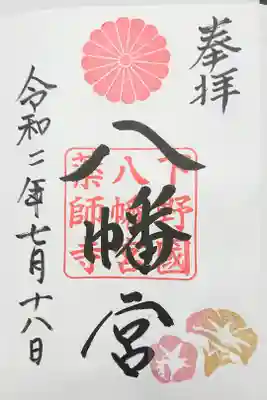 奉拝
八幡宮
下野國
八幡宮
薬師寺
令和二年七月十八日